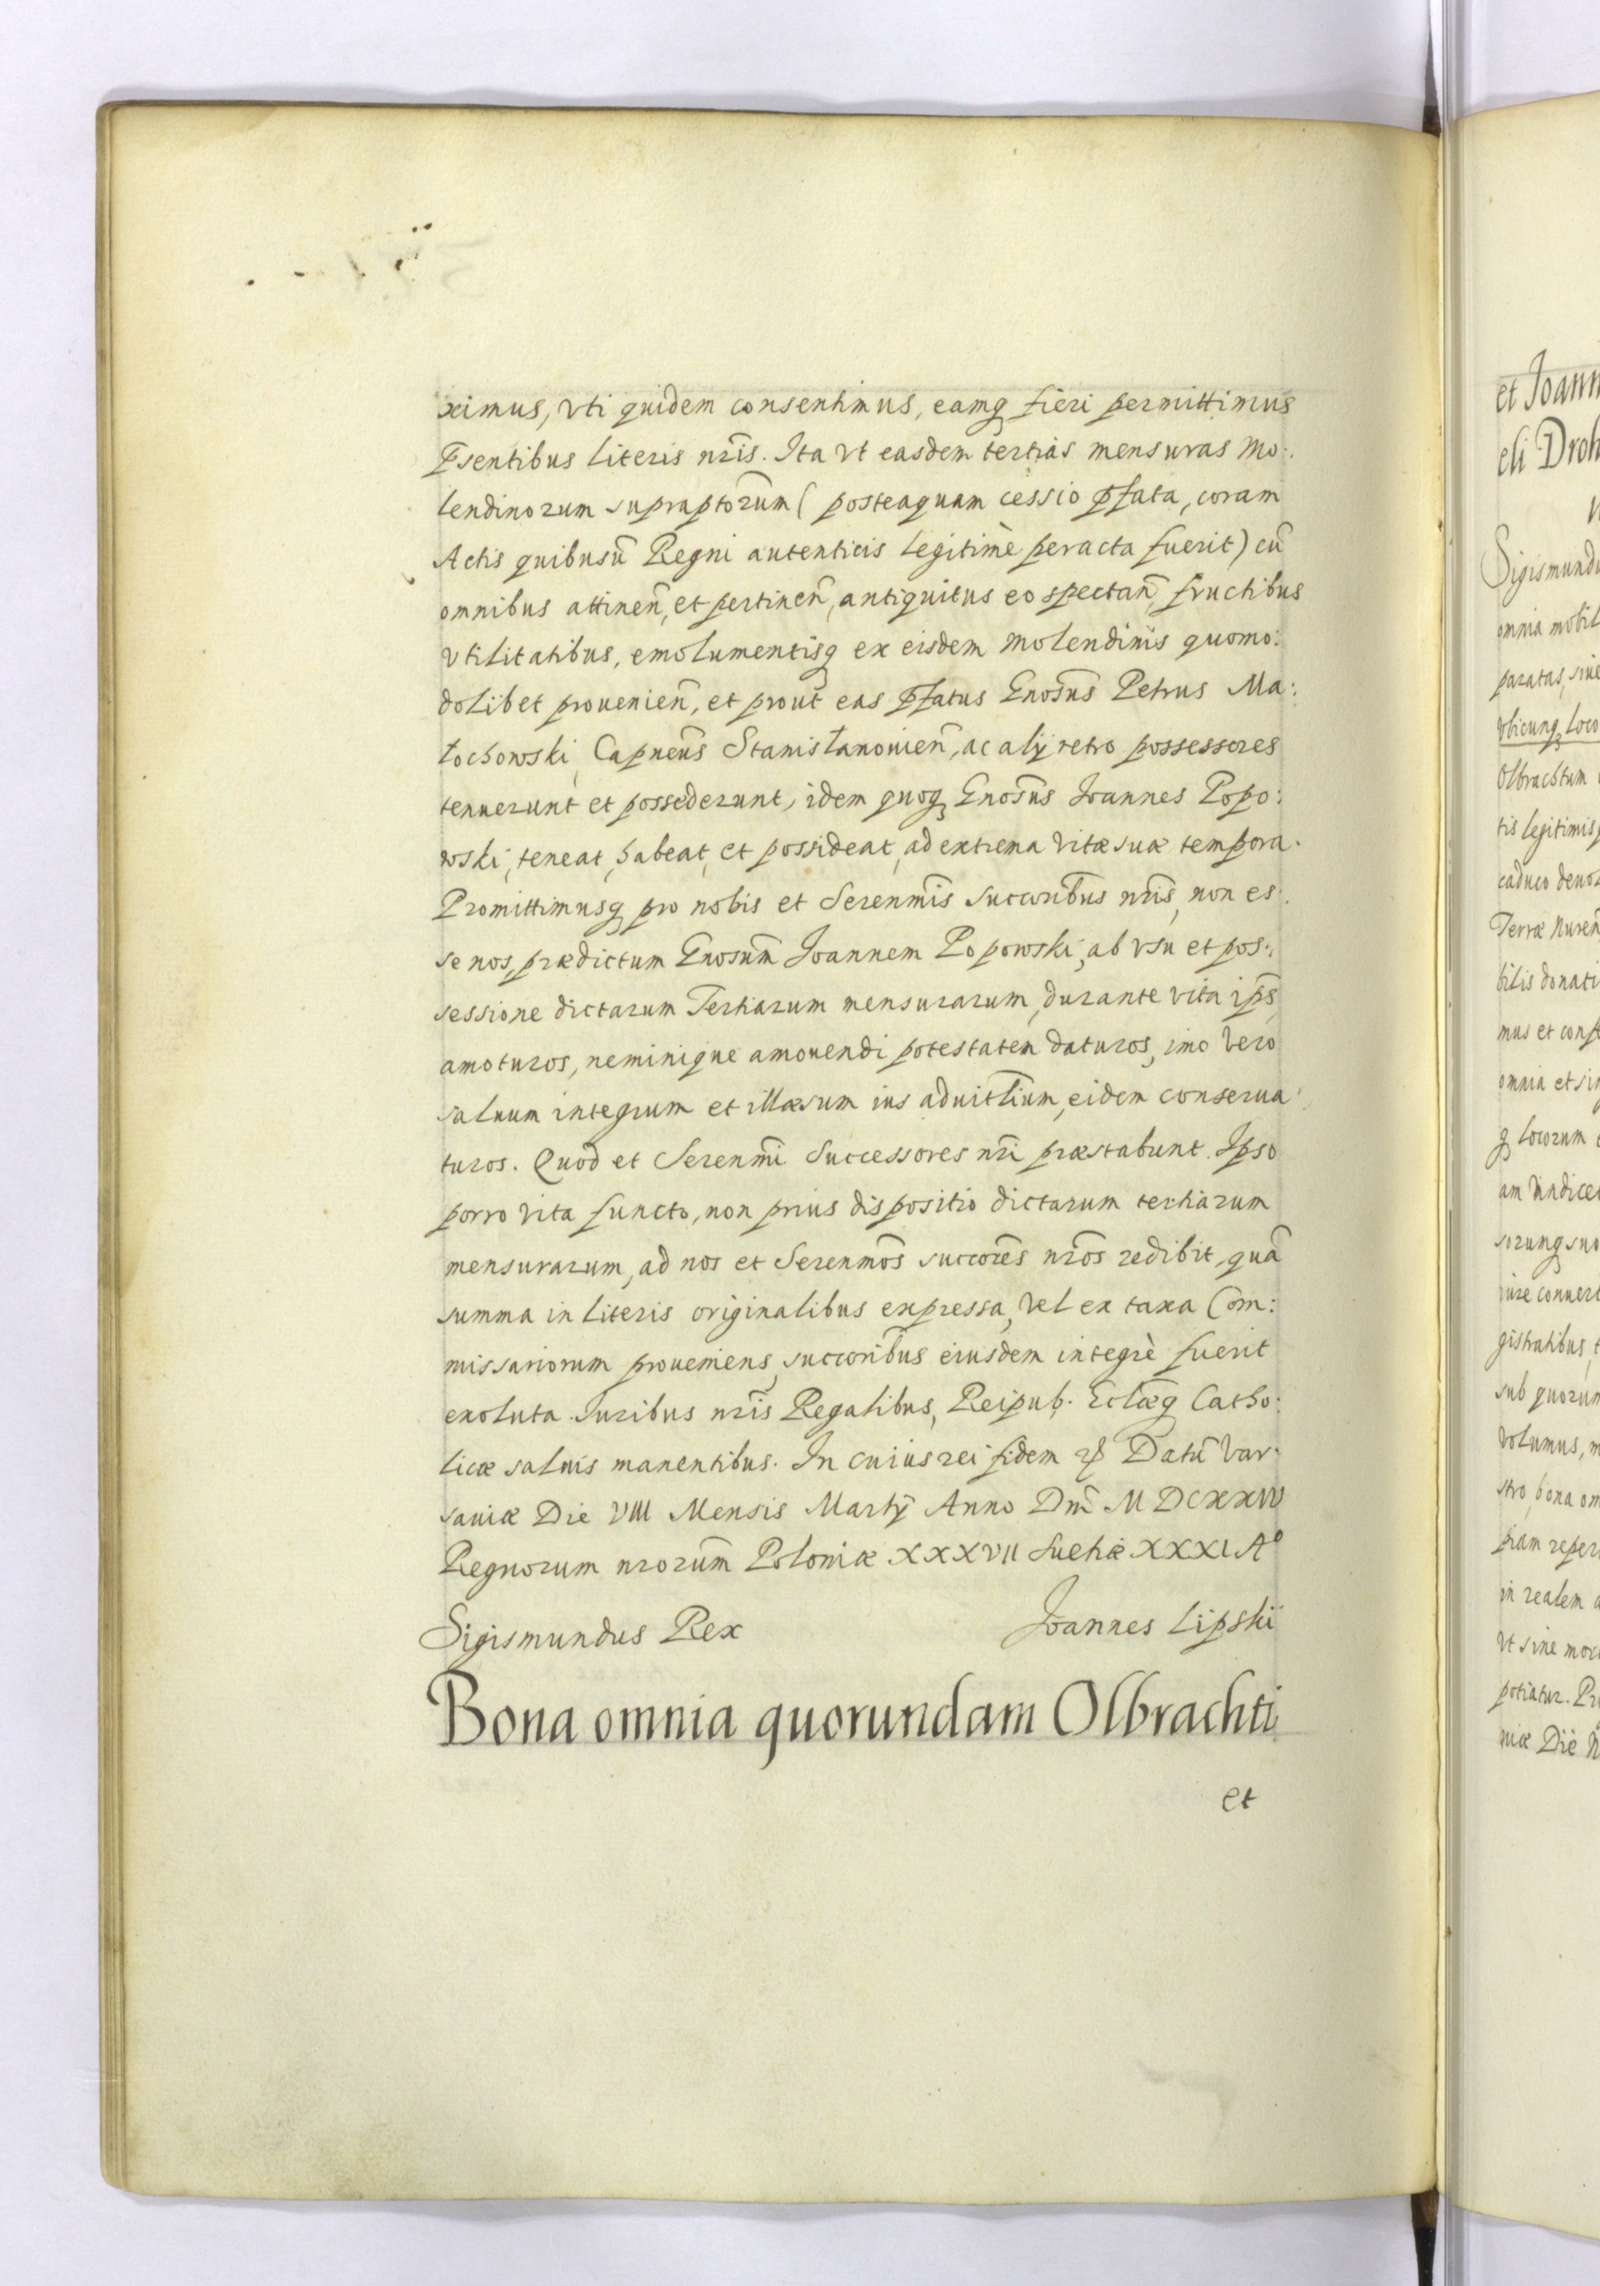 ximus, vti quidem consentimus, eamq fieri permittimus
Psentibus literis nr̃is. Ita vt easdem tertias mensuras Mo:
lendinorum supraptorũm ( posteaquam cessio pfata, coram
Actis quibusũ Regni autenticis legitimè peracta fuerit) cũ
omnibus attinen̄, et pertinen̄, antiquitus eo spectan̄, fructibus
vtilitatibus, emolumentisq ex eisdem Molendinis quomo:
dolibet prouenien̄, et prout eas pfatus Gnosũs Petrus Ma:
łochowski, Capneũs Stanisłanouien̄, ac alij retro possessores
tenuerunt et possederunt, idem quoq Gnosũs Joannes Popo:
wski, teneat, habeat, et possideat, ad extrema vitæ suæ tempora.
Promittimusq pro nobis et Serenm̃is Succoribũs nr̃is, non es:
se nos, prædictum Gnosũm Joannem Popowski, ab vsu et pos:
sessione dictarum Tertiarum mensurarum, durante vita ip̃s
amoturos, neminique amouendi potestatem daturos, imo vero
saluum integrum et illæsum ius aduitlĩum, eidem conserua
turos. Quod et Serenm̃i Successores nr̃i præstabunt. Ipso
porro vita functo, non prius dispositio dictarum tertiarum
mensurarum, ad nos et Serenmõs succorẽs nrõs redibit, quã
summa in literis originalibus expressa, vel ex taxa Com:
missariorum proueniens, succoribũs eiusdem integrè fuerit
exoluta. Iuribus nr̃is Regalibus, Reipub. Eclæ̃q Catho:
licæ saluis manentibus. In cuius rei fidem &c Datũ Var:
sauiæ Die VIII Mensis Martij Anno Dnĩ M DCXXIV
Regnorum nrorũm Poloniæ XXXVII Suetiæ XXXI Aº
Sigismundus Rex Joannes Lipski
Bona omnia quorundam Olbrachti
et
et Joann
eli Droh
Sigismundu
omnia mobil
paratas, siue
vbicunq loco
Olbrachtum
tis legitimis
caduco deuo
Terræ Nuren̄
bilis donati
mus et conf
omnia et sin
q locorum
am vindice
sorunq suo
iure conuer
gistratibus,
sub quorum
volumus, m
stro, bona om
piam reper
in realem a
vt sine mor
potiatur. Pr
niæ Die